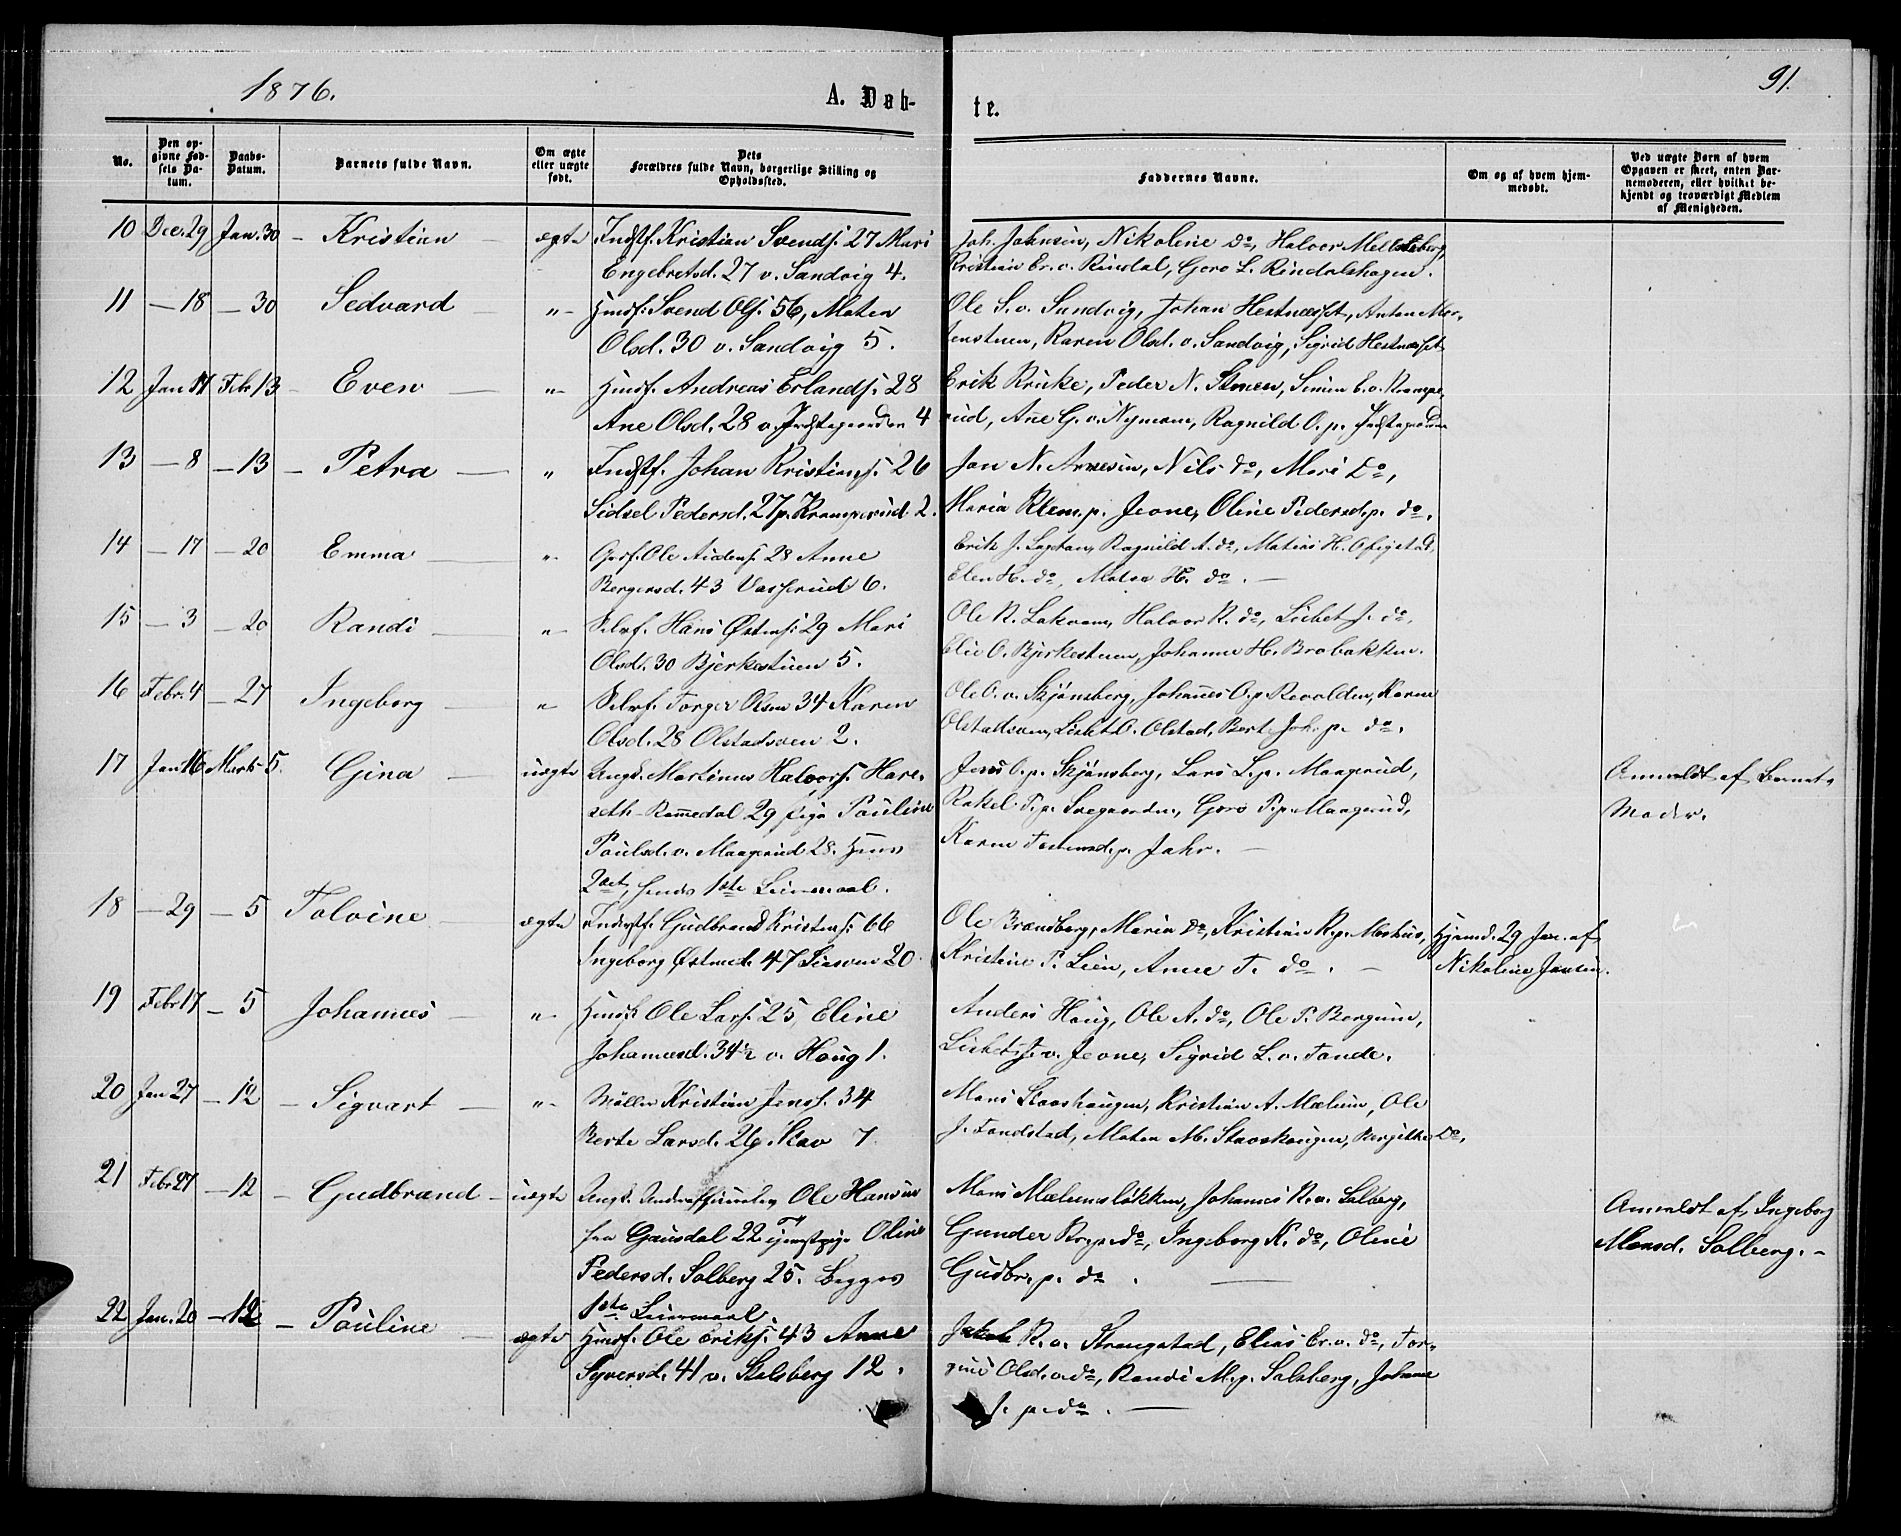 1876.
A. Døb-
te.
91.
No.
Den op-
givne Fød-
sels Da-
tum.
Daabs-
Datum.
Barnets fulde Navn.
Om ægte
eller uægte
født.
Dets
Forældres fulde Navn, borgerlige Stilling og
Opholdssted.
Faddernes Navne.
Om og af hvem hjem-
medøbt.
Ved uægte Børn af hvem
Opgaven er skeet, enten Bar-
nemoderen, eller hvilket be-
kjendt og troværdigt Medlem
af Menigheden.
10 Dec. 29 Jan. 30 - Kristian - ægte Indstf. Kristian Svends. 27 Mari
Engebretsd. 27 v. Sandvig 4.
Joh. Johnsen, Nikoline do,
Kristian Er. v. Rindal, Goro L. Rindalshagen.
11 - 18 - 30 Sedvard - " - Husf. Svend Ols. 56, Maten
Olsd. 30 v. Sandvig 5.
Ole S. v. Sandvig, Johan Hestnesset, Anton Mor-
tenstuen, Karen Olsd. v. Sandvig, Sigrid Hestnesset
12 Jan 17 Febr 13 - Even " - Husf. Andreas Erlands. 28
Ane Olsd. 28 v. 4
Erik Kruke, Peder N. Simen E. v.
rud, Ane G. v. Nymoen, Ragnild O. p.
13 - 8 - 13 - Petra - " Indstf. Johan Kristians. 26
Sidsel Pedersd. 27 p. Kramperud 2.
Jan N. Arnesen, Nils do, Mari do,
Maria Klem, p. Jeone, Oline Pedersd. p. do.
14 - 17 - 20 Emma - " - Gbrf. Ole Audens. 28 Anne
Bergersd. 43 Vasserud 6.
Erik J. Ragnild A. do, Matias H.
Elen H. do, Maten H. do. -
15 - 3 - 20 Randi - " - Selvf. Hans Østens. 29 Mari
Olsd. 30 Bjerkestuen 5.
Ole R. Halvor R. do, Lisbet J. do,
Elie O. Bjerkestuen, Johanne H. Brobakken.
16 Febr. 4 - 27 Ingeborg - " Selvf. Torger Olsen 34 Karen
Olsd. 28 Olstadsveen 2.
Ole O. v. Skjønsberg, Johannes O. p. Revolden, Karen
Olstadsveen, Lisbet O. Olstad, Bert. Joh. p. do.
17 Jan 16 Marts 5. Gina - uægte Ungk. Martinus Halvors. Hare-
seth Romedal 29 Pige Pauline
Paulsd. v. Maagerud 28. Hans
2det, hendes 1ste Leiermaal.
Jens O. p. Skjønsberg, Lars L. p. Maagerud,
Rakel T. p. Goro P. p. Maagerud,
Karen Torstensd. p. Jahr. -
Anmeldt af Barnets
Moder.
18 - 29 - 5 Tolvine - ægte Inderstf. Gudbrand Kristens. 66
Ingeborg Østensd. 47 20.
Ole Brændberg, Maria do, Kristian K. p. Moshus,
Kristine P. Lien, Anne T. do. -
Hjemd. 29 Jan. af
Nikoline Jansen.
19 Febr 17 - 5 Johannes - " - Ole Lars. 25, Eline
Johannesd. 34½ v. Houg 1.
Anders Houg, Ole A. do, Ole P. Borgum,
Lisbet J. v. Jeone, Sigrid L. v. Tande.
20 Jan 27 - 12 - Sigvart - " - Møller Kristian Jens. 34
Berte Larsd. 26 7.
Mons Staashaugen, Kristian A. Mælum, Ole
J. Tandstad, Maten M. Staashaugen, Birgitte do.
21 Febr 27 - 12 - Gudbrand - uægte Ungk. Ole Hansen
fra Gausdal 22 Tjenestpige Oline
Pedersd. Solberg 25. Begges
1ste Leiermaal.
Mons Mælumsløkken, Johannes K. v. Solberg,
Gunder Kr. p. do, Ingeborg K. do, Oline
Gudbr. p. do. -
Anmeldt af Ingeborg
Monsd. Solberg. -
22 Jan. 20 - 12 - Pauline - ægte Husf. Ole Eriks. 43 Anne
Syversd. 41 v. Stalsberg 12.
Jakob K. v. Strangstad, Elias Er. v. do, Tor-
gine Olsd. v. do, Randi M. p. Salsberg, Johanne
J. p. do. -